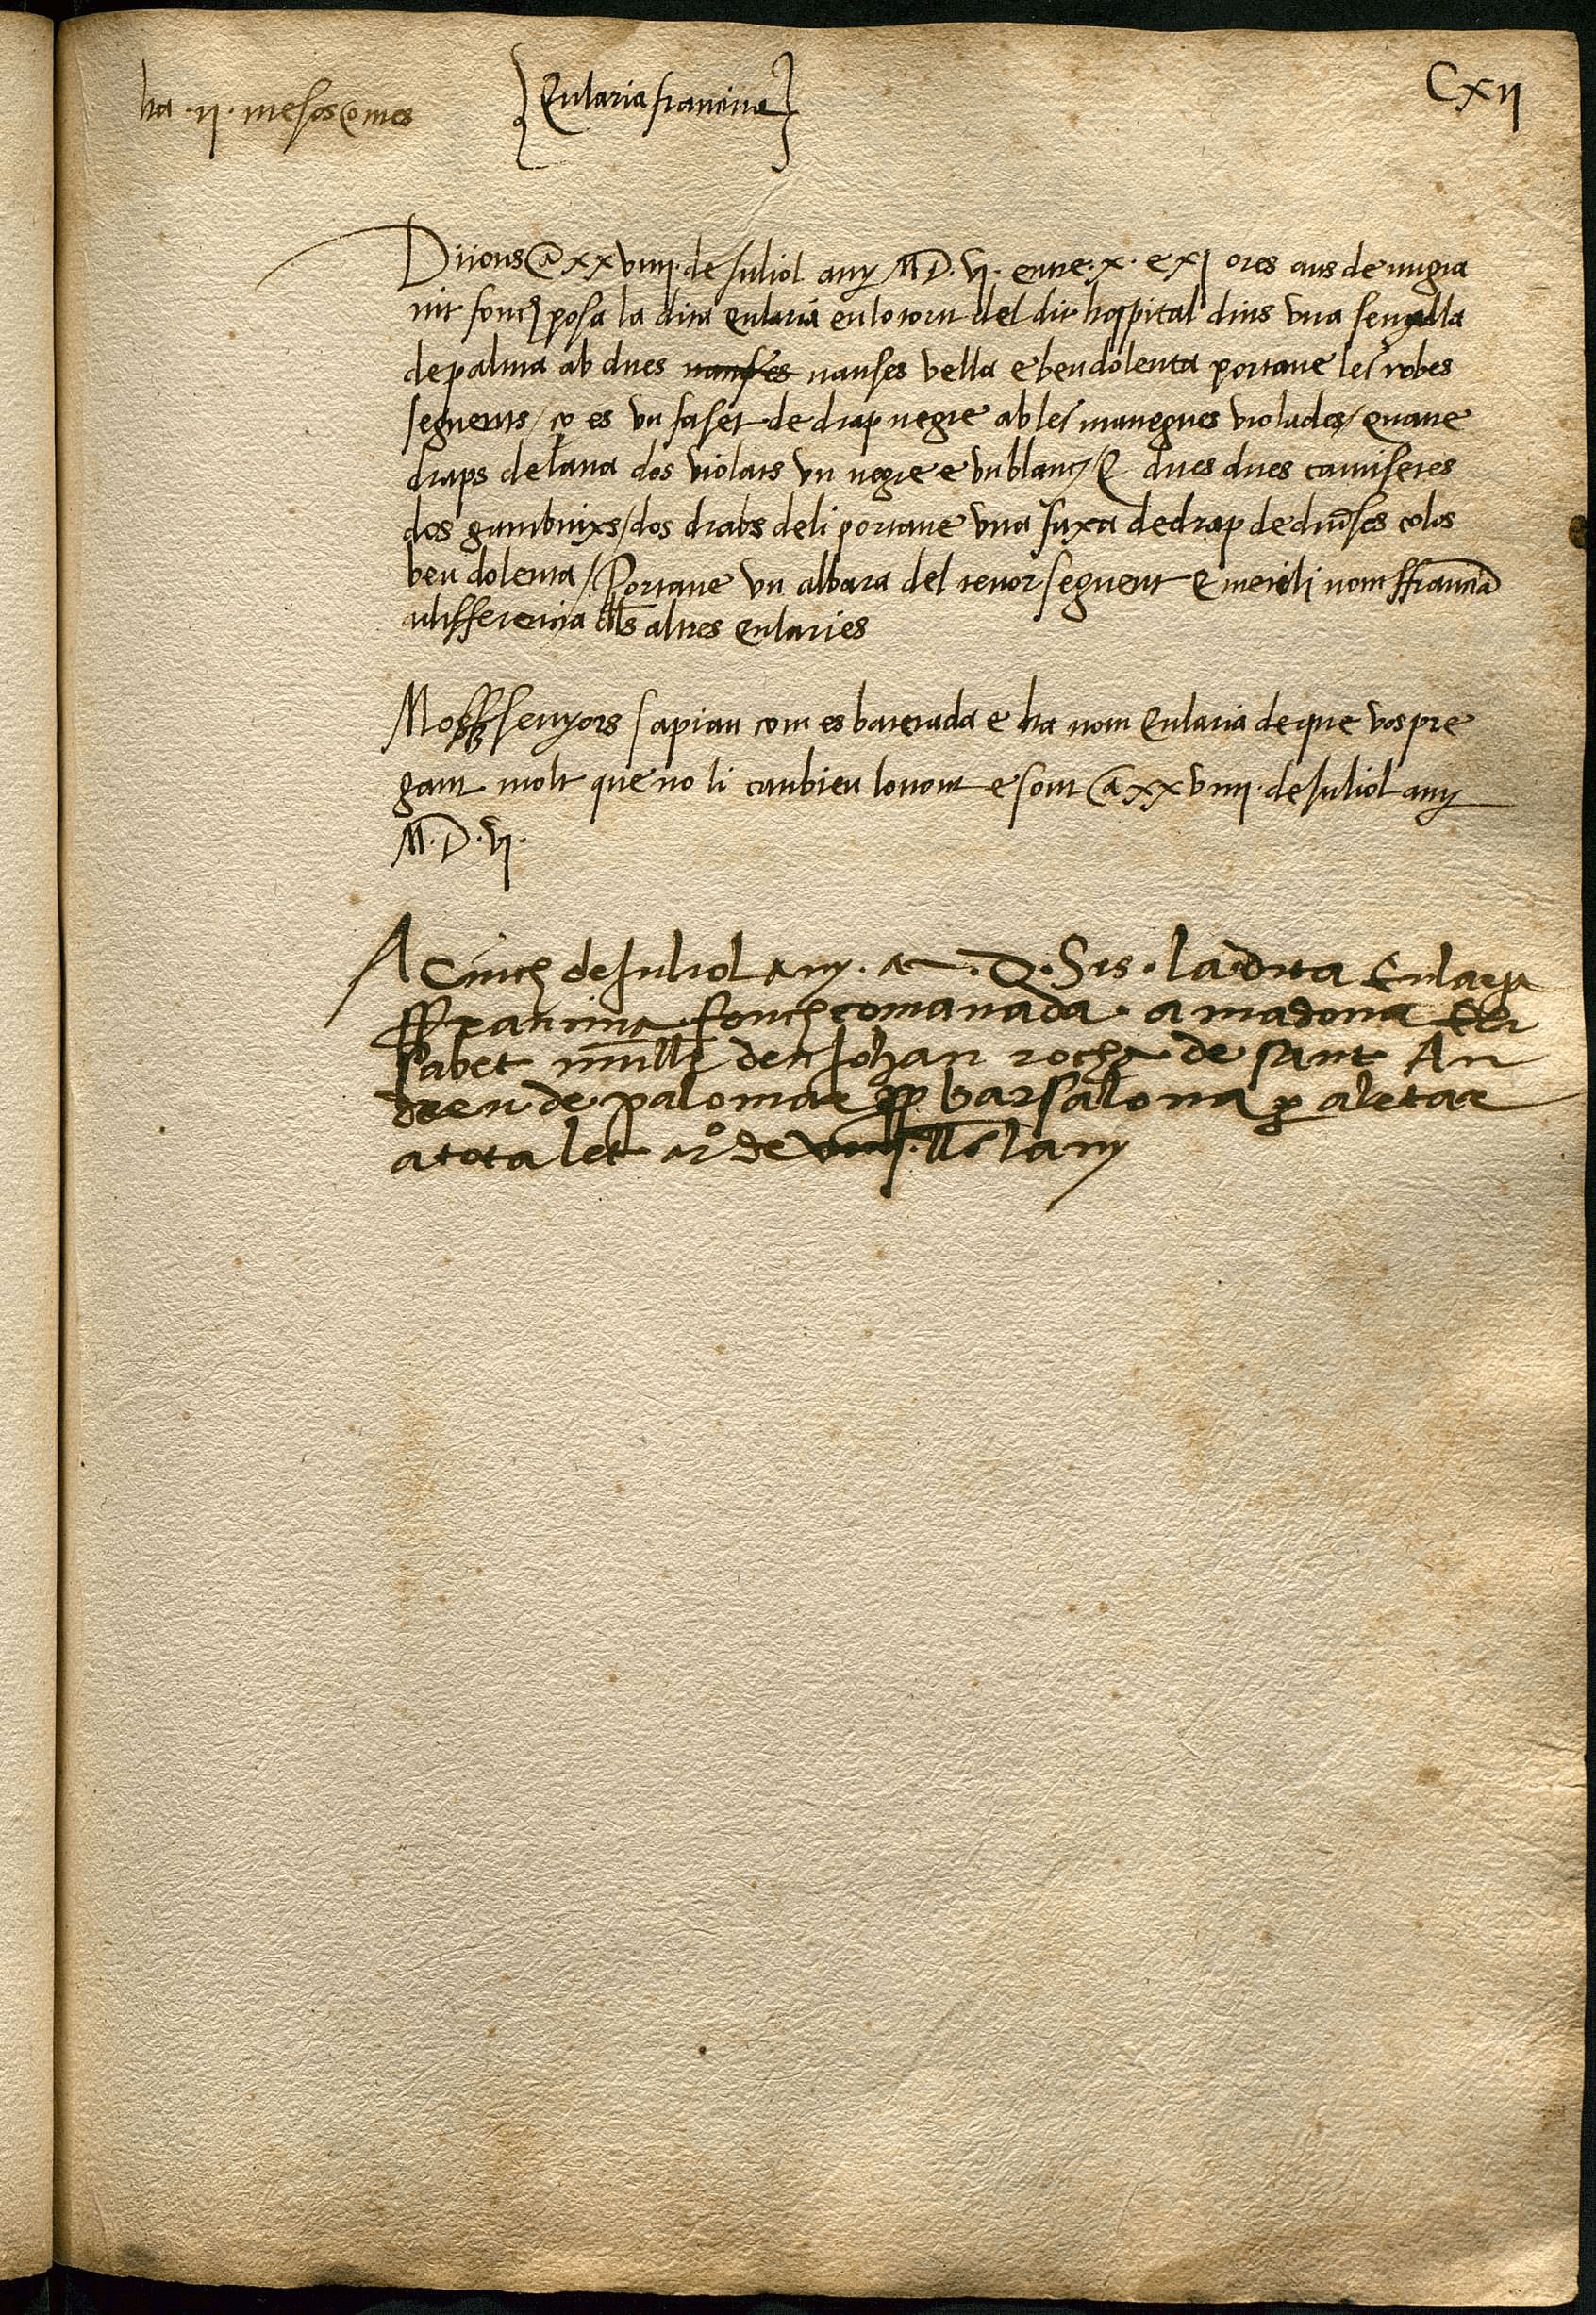 ha .ii. mesos o mes
Eularia francina
Cxii
Dijous a xxviiii de Juliol any MD.vi. entre .x. e xi ores ans de migia
nit fonch posa la dita eularia en lo torn del dit hospital dins una senalla
de palma ab dues nanses nanses vella e ben dolenta portave les robes
seguents / ço es un saset de drap negre ab les manegues violades / quatre
draps de lana dos violats un negre e un blanch / E dues dues camisetes
dos gambuixs / dos drabs de li portave una faxa de drap de diverses colos
ben dolenta / Portave un albara del tenor seguent E mes li nom ffrancina
a differencia dlls altres eularies
Mossenyors sapiau com es batejada e ha nom Eularia de que vos pre
gam molt que no li canbieu lo nom e som a xxviiii de Juliol any
M.D.vi.
A Cinch de Juliol any .M.D.Sis. la dita Eularya
ffrancina fonch comanada a madona Eli
sabet mull den Johan rocha de sant An
dreu de palomar pp barsalona p aletar
a tota let a ro de viiii ll lany